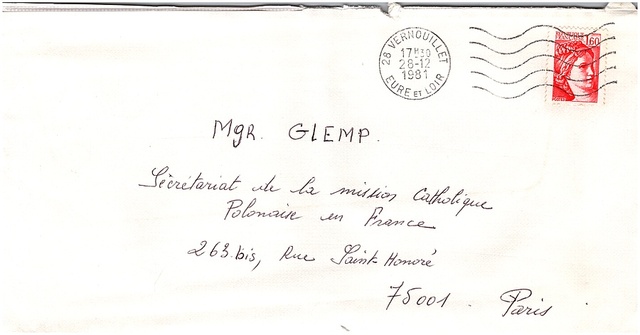 28 VERNOUILLET
17H30
28-12
1981
EURE ET LOIR
1,60
MgR. GLEMP.
Sécrétariat de la mission Catholique
Polonaise en France
263.bis, Rue Saint-Honoré
75001. Paris